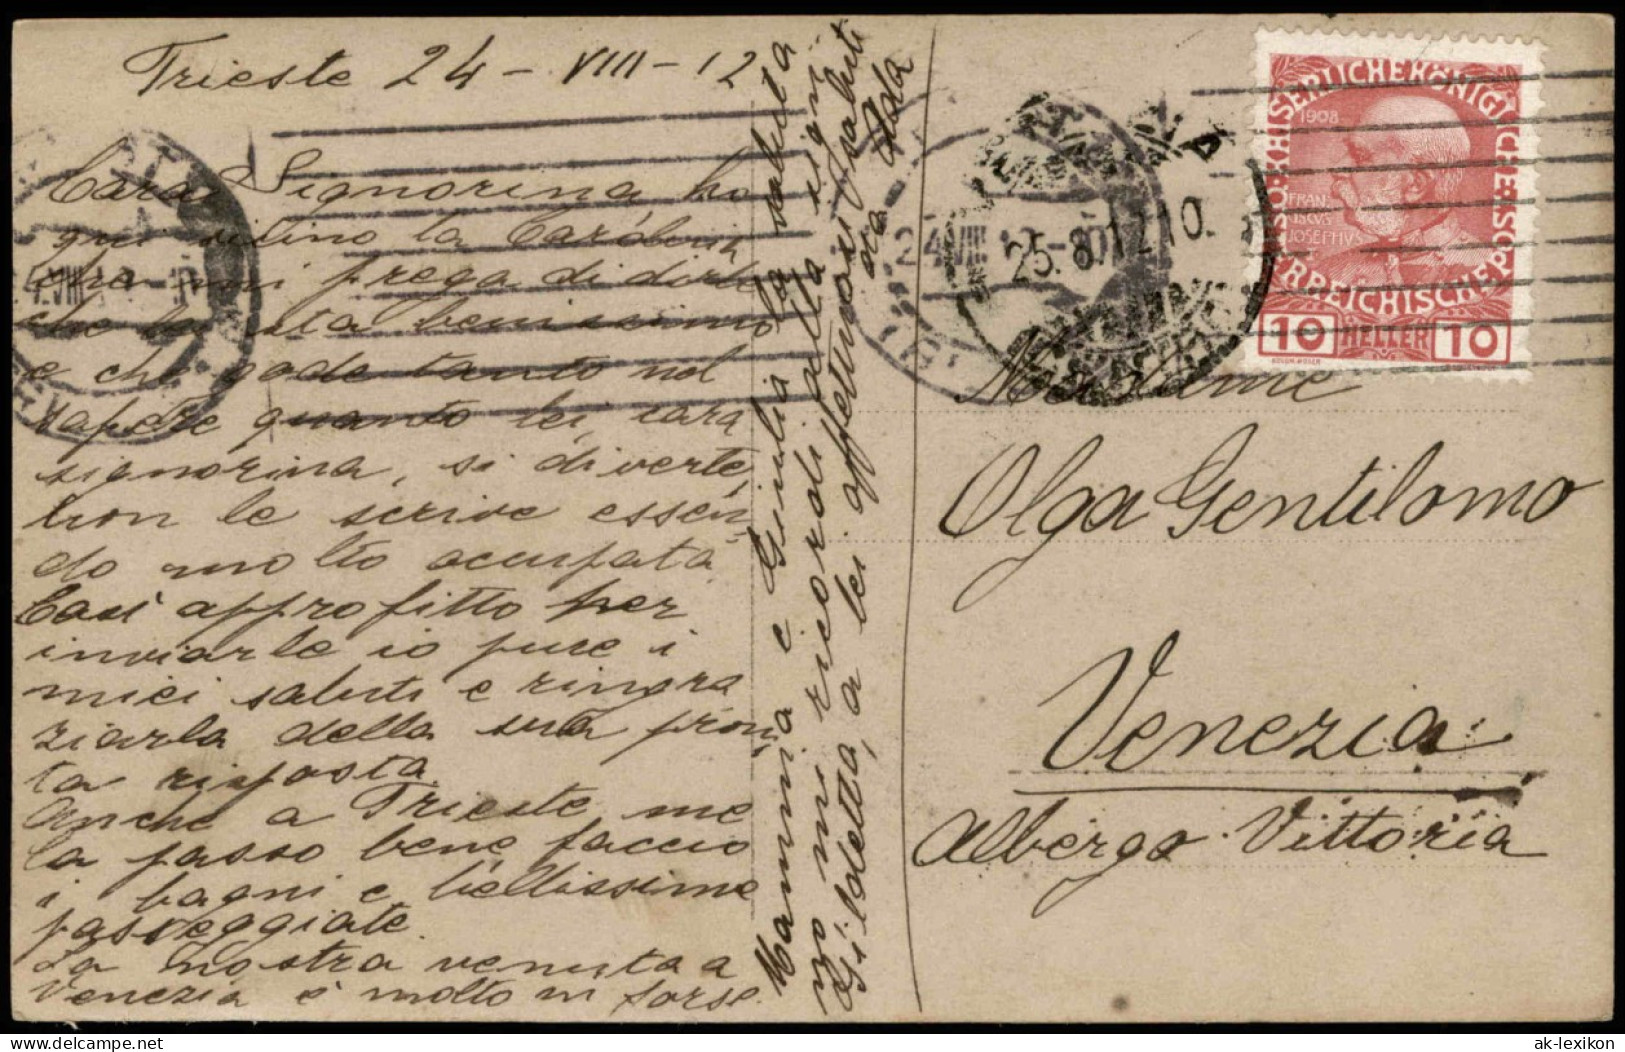 Trieste 24 - VIII - 12
Cara Signorina ho
qui vicino la
che mi prega di dirle
che sta benissimo
e che gode tanto nel
sapere quanto lei, cara
signorina, si diverte,
non le scrive essen
do molto occupata.
Così approfitto per
inviarle io pure i
miei saluti e ringra
ziarla della sua pron
ta risposta.
Anche a Trieste me
la passo bene faccio
i bagni e bellissime
passeggiate.
La nostra venuta a
Venezia è molto in forse.
Mamma e Giulia la saluta
no mi ricordi alla sign.
Gildetta, a lei affettuosi saluti
sua Ada
24 VIII
25.8.12 10.
KAISERLICHE KÖNIGLICHE
ÖSTERREICHISCHE POST
1908
FRAN
CISCVS
JOSEPHVS
10 HELLER 10
Madame
Olga Gentilomo
Venezia
Albergo Vittoria
© the-hitmeister.com
ak-lexikon